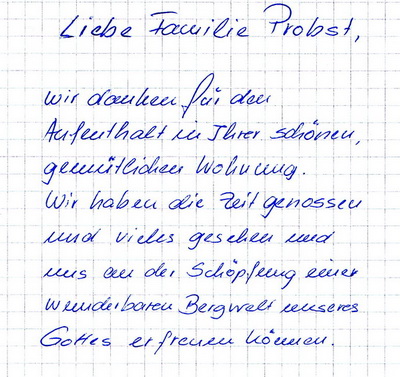 Liebe Familie Probst,
wir danken für den
Aufenthalt in Ihrer schönen,
gemütlichen Wohnung.
Wir haben die Zeit genossen
und vieles gesehen und
uns an der Schöpfung einer
wunderbaren Bergwelt unseres
Gottes erfreuen können.